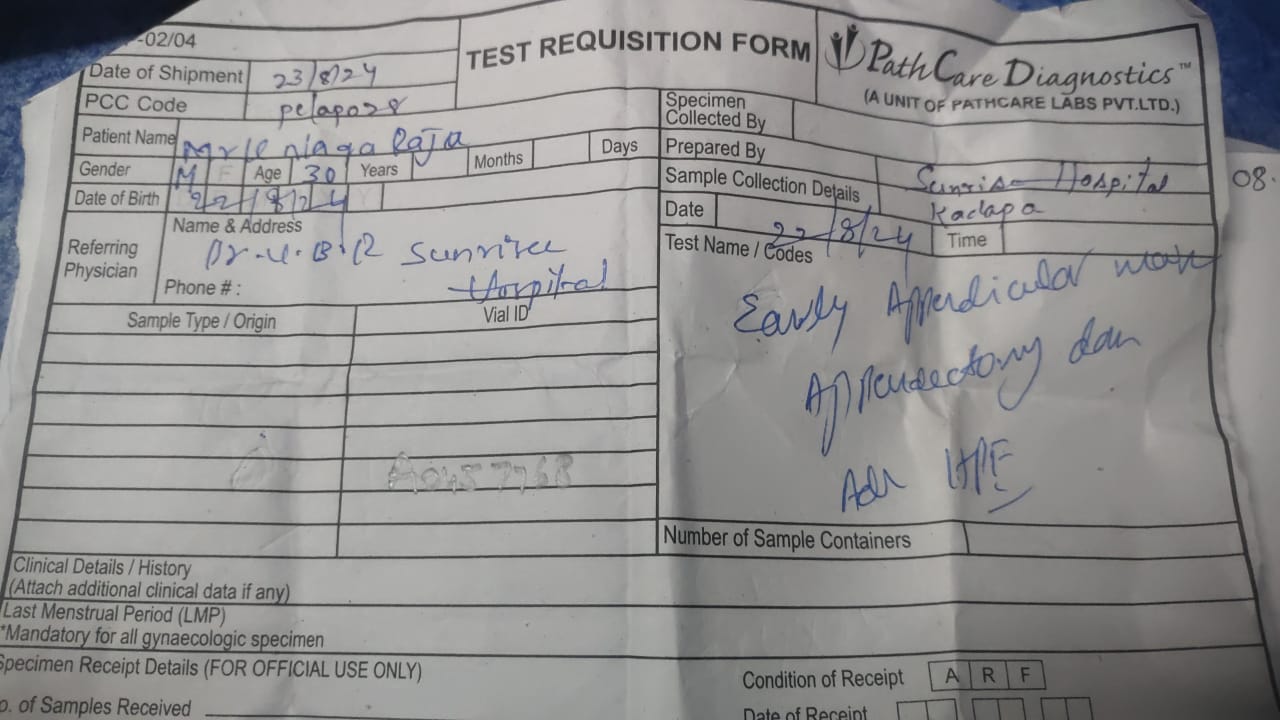 -02/04
TEST REQUISITION FORM
PathCare Diagnostics™
(A UNIT OF PATHCARE LABS PVT.LTD.)
Date of Shipment 23/8/24
PCC Code pelap028
Patient Name Mr K naga Raja
Gender M F Age 30 Years Months Days
Date of Birth 22/8/24 Y
Referring Physician
Name & Address
Dr.U.B.R Sunrise
Hospital
Phone # :
Specimen Collected By
Prepared By
Sample Collection Details Sunrise Hospital
Kadapa
Date 22/8/24 Time
08.
Test Name / Codes
Early Appendicular
Appendectomy
Adv HPE
Sample Type / Origin Vial ID
A0457768
Number of Sample Containers
Clinical Details / History
(Attach additional clinical data if any)
Last Menstrual Period (LMP)
*Mandatory for all gynaecologic specimen
Specimen Receipt Details (FOR OFFICIAL USE ONLY)
Condition of Receipt A R F
o. of Samples Received
Date of Receipt